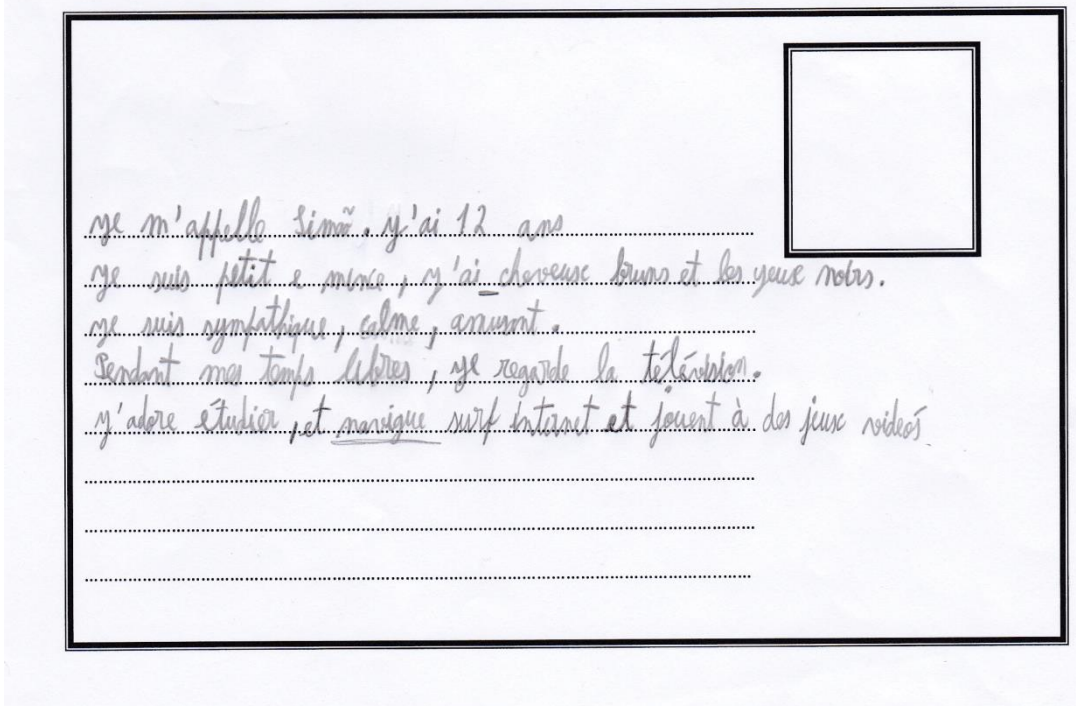 Je m'appelle Simão. J'ai 12 ans
Je suis petit e mince, J'ai cheveuse bruns et les yeux noirs.
Je suis sympathique, calme, amusant.
Pendant mes temps libres, je regarde la télévision.
J'adore étudier, et navigue surf internet et jouent à des jeux videós